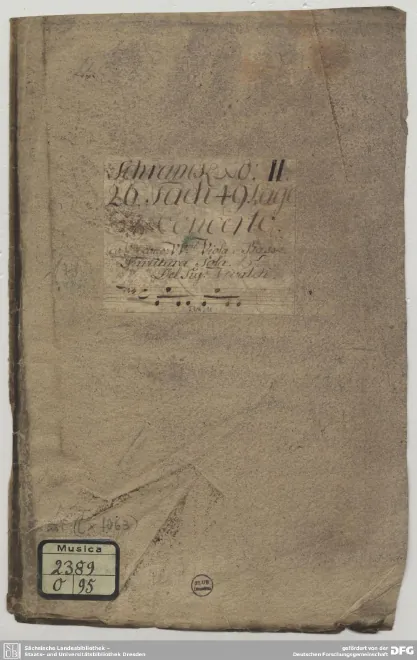 Schranck No: II.
26. Fach 49. Lage
Concerto.
Viola Basso
Partitura Sola
Del Sig: Vivaldi
(Cx 1063)
Musica
2389
O 95
Sächsische Landesbibliothek –
Staats- und Universitätsbibliothek Dresden
gefördert von der
Deutschen Forschungsgemeinschaft
DFG